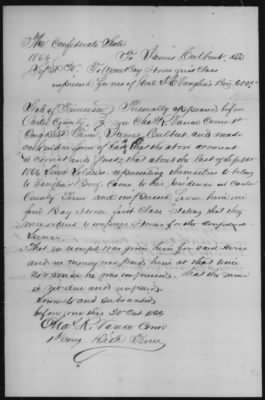 The Confederate States
1864 To James Culbert, Dr
Sept To One Bay Horse first Class
impressed for use of Genl J. C. Vaughn's Brig 600$
State of Tennessee Personally appeared before
Carter County me Chas R. Vance Comr 1st
Cong Dist Tenn James Culbert and made
oath in due form of law that the above account
is correct and just, that about the last of Sept
1864 Some Soldiers representing themselves to belong
to Vaughns Brig. Came to his residence in Carter
County Tenn and impressed from him one
fine Bay Horse first Class Stating that they
were ordered to impress Horses for the Confederate
That no receipt was given him for said Horse
and no money was paid him at that time
nor since he was impressed. that the same
is yet due and unpaid.
Sworn to and subscribed
before me this 20th Oct 1864
Chas R. Vance Comr
1st Cong Dist Tenn